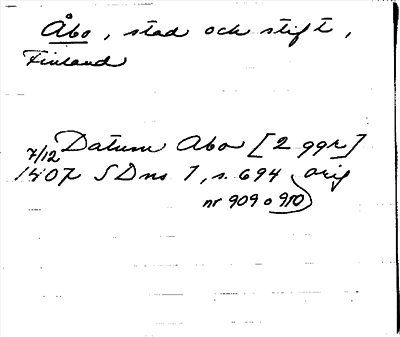 Åbo, stad och stift,
Finland
7/12 Datum Abo [2 ggr]
1407 SDns 1, s. 694 orig
nr 909 o 910